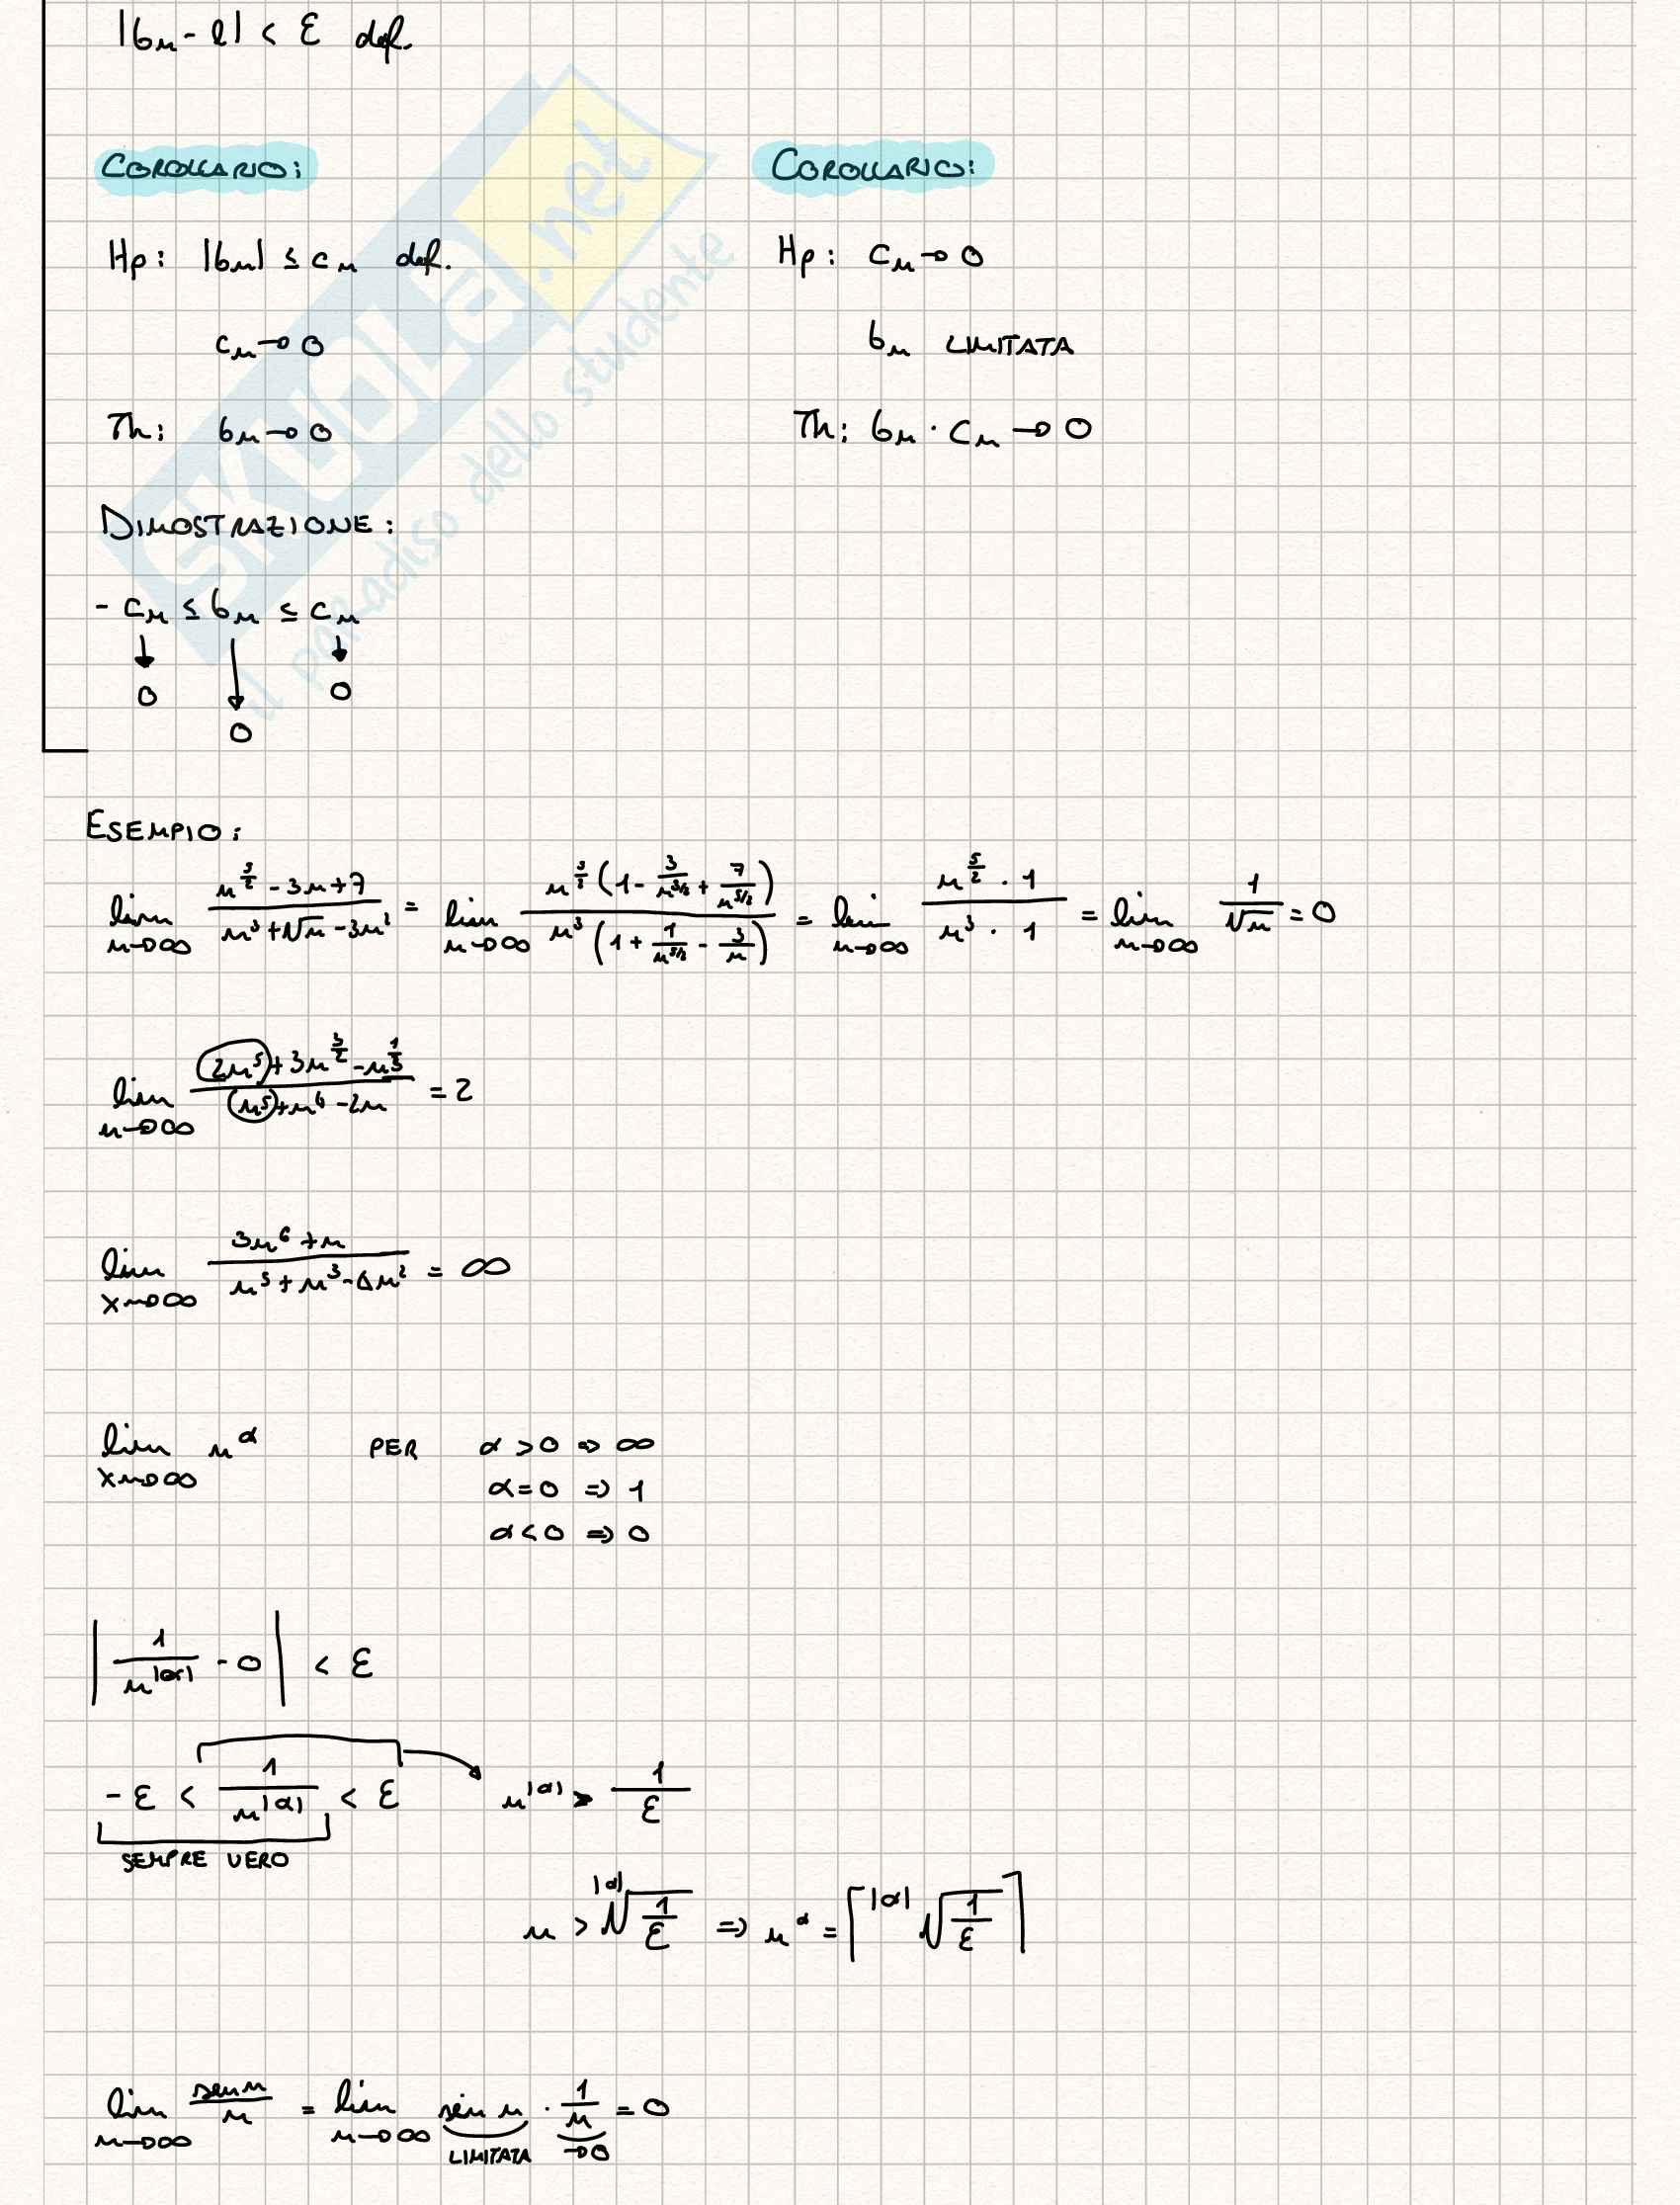 |bₙ - l| < ε def.
COROLLARIO:
Hp: |bₙ| ≤ cₙ def.
cₙ → 0
Th: bₙ → 0
DIMOSTRAZIONE:
- cₙ ≤ bₙ ≤ cₙ
↓ ↓ ↓
0 0 0
COROLLARIO:
Hp: cₙ → 0
bₙ LIMITATA
Th: bₙ · cₙ → 0
SKUOLA.net
il paradiso dello studente
ESEMPIO:
lim n→∞ (n^(5/2) - 3n + 7)/(n³ + √n - 3n²) = lim n→∞ n^(5/2) (1 - 3/n^(3/2) + 7/n^(5/2)) / n³ (1 + 1/n^(5/2) - 3/n) = lim n→∞ (n^(5/2) · 1)/(n³ · 1) = lim n→∞ 1/√n = 0
lim n→∞ (2n⁵ + 3n^(3/2) - n^(1/3))/(n⁵ + n⁴ - 2n) = 2
lim x→∞ (3n⁶ + n)/(n⁵ + n³ - 6n²) = ∞
lim x→∞ n^α PER α > 0 ⇒ ∞
α = 0 ⇒ 1
α < 0 ⇒ 0
|1/n^|α| - 0| < ε
- ε < 1/n^|α| < ε → n^|α| > 1/ε
SEMPRE VERO
n > ^|α|√(1/ε) ⇒ n^α = ⌈^|α|√(1/ε)⌉
lim n→∞ sen n/n = lim n→∞ sen n · 1/n = 0
LIMITATA →0